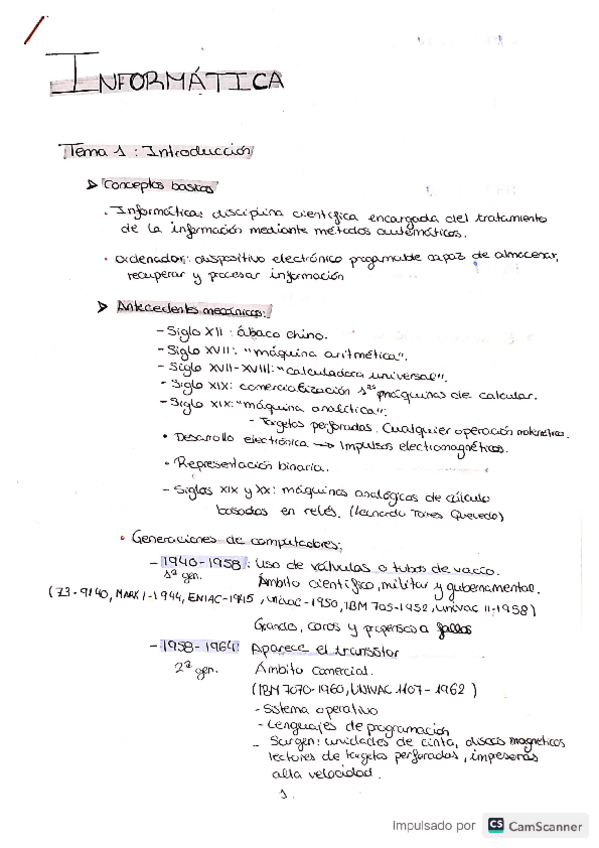 INFORMÁTICA
Tema 1: Introducción
➤ Conceptos basicos
· Informática: disciplina científica encargada del tratamiento
de la información mediante métodos automáticos.
· ordenador: dispositivo electrónico progamable capaz de almacenar,
recuperar y procesar información
➤ Antecedentes mecánicos:
- Siglo XII: ábaco chino.
- Siglo XVII: "máquina aritmética".
- Siglo XVII-XVIII: "calculadora universal".
- Siglo XIX: comercialización 1ªs máquinas de calcular.
- Siglo XIX: "máquina analítica":
- Targetas perforadas. Cualquier operación matemática.
• Desarrollo electrónica → Impulsos electromagnéticos.
• Representación binaria.
- Siglos XIX y XX: máquinas analógicas de cálculo
basadas en relés. (Leonardo Torres Quevedo)
• Generaciones de computadores:
- 1940-1958: Uso de válvulas o tubos de vacío.
1ª gen. Ámbito científico, militar y gubernamental.
(Z3-9140, MARK I-1944, ENIAC-1945, Univac-1950, IBM 705-1952, Univac II-1958)
Grandes, caros y propensos a fallos
- 1958-1964: Aparece el transistor
2ª gen. Ámbito comercial.
(IBM 7070-1960, UNIVAC 1107-1962)
- Sistema operativo
- Lenguajes de programación
- Surgen: unidades de cinta, discos magnéticos
lectores de targetas perforadas, impresoras
alta velocidad.
1.
Impulsado por CS CamScanner